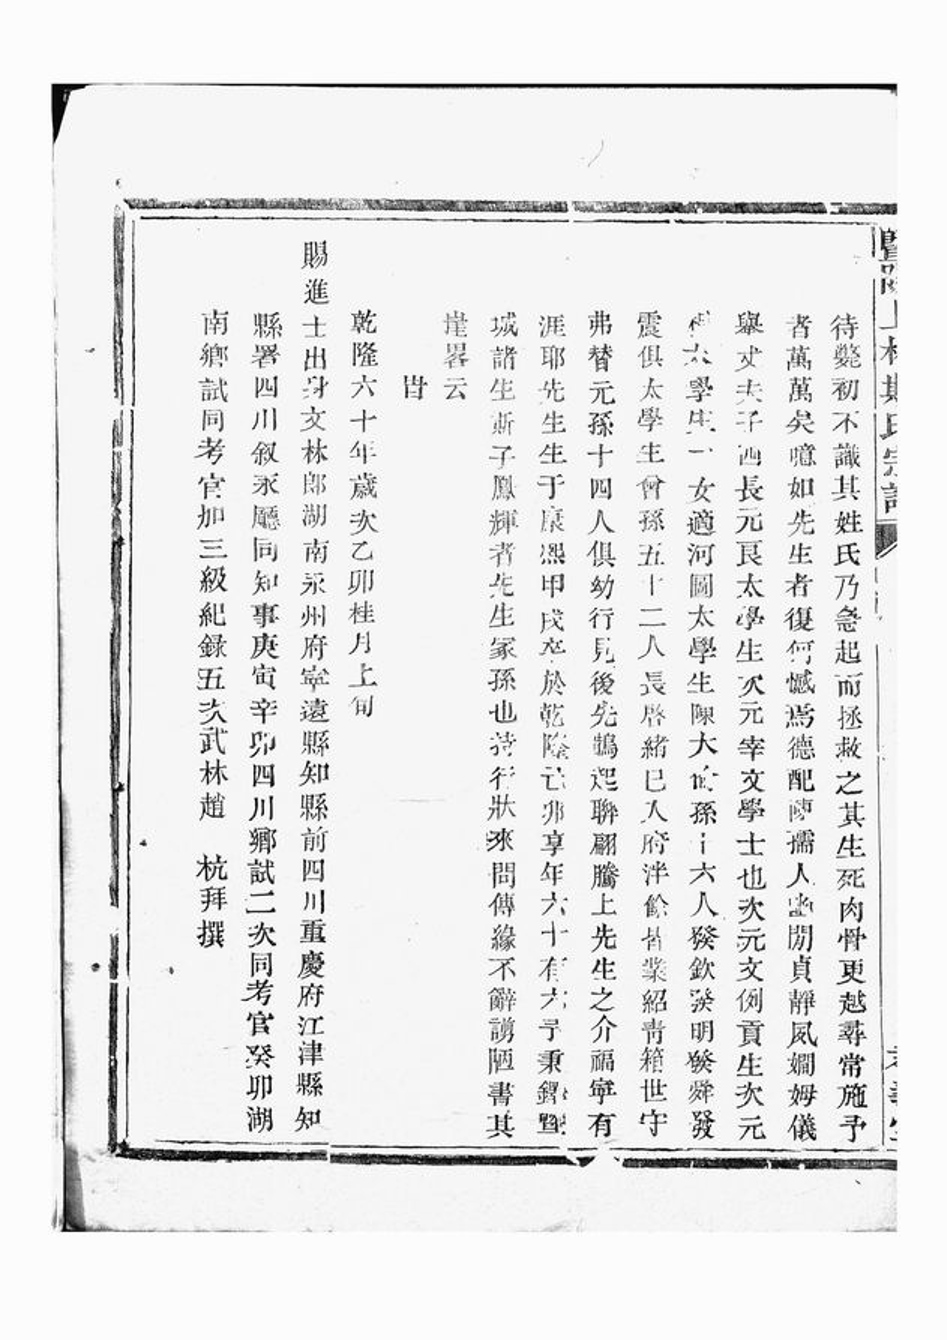 暨陽上林斯氏宗譜
待斃初不識其姓氏乃急起而拯救之其生死肉骨更越尋常施予
者萬萬矣噫如先生者復何憾焉德配陳孺人幽閒貞靜夙嫺姆儀
舉丈夫子四長元良太學生次元宰文學士也次元文例貢生次元
太學生一女適河圖太學生陳大 孫十六人發欽發明發舜發
震俱太學生曾孫五十二人長啓緒已入府泮餘皆業紹靑箱世守
弗替元孫十四人俱幼行見後先鵲起聯翩騰上先生之介福寧有
涯耶先生生于康熙甲戌卒於乾隆己卯享年六十有六予秉鐸暨
城諸生斯子鳳輝者先生冢孫也持行狀來問傳緣不辭謭陋書其
崖畧云
旹
乾隆六十年歲次乙卯桂月上旬
賜進士出身文林郎湖南永州府寧遠縣知縣前四川重慶府江津縣知
縣署四川叙永廳同知事庚寅辛卯四川鄉試二次同考官癸卯湖
南鄉試同考官加三級紀録五次武林趙 杭拜撰